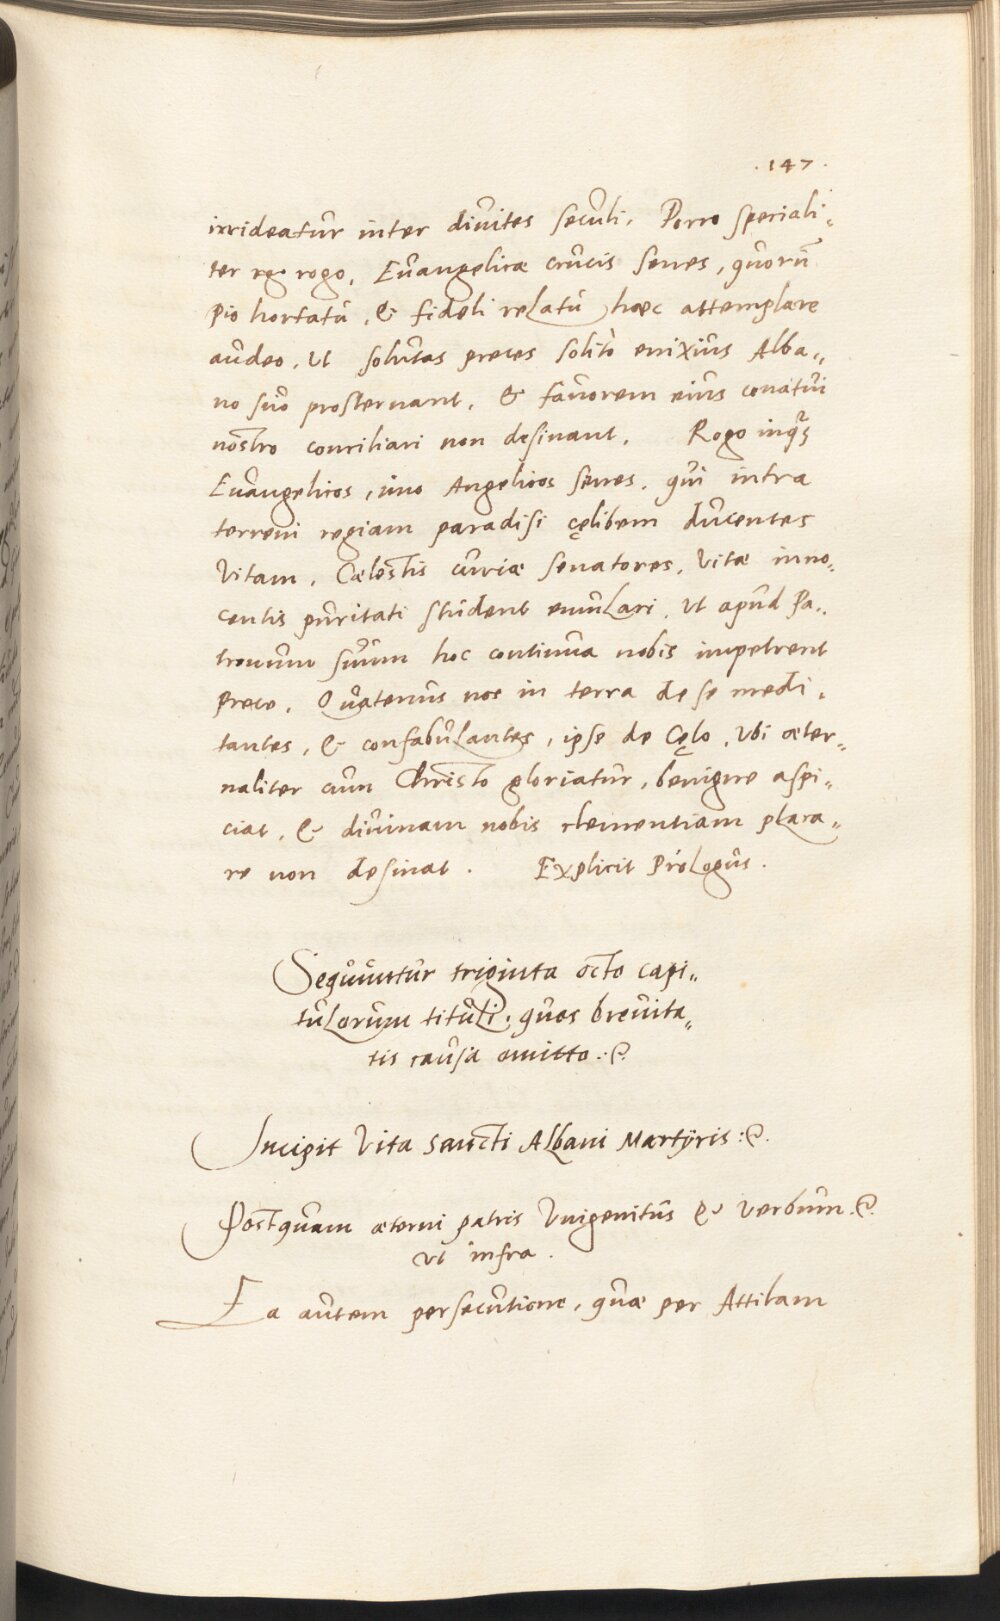 .147.
irrideatur inter diuites seculi. Porro speciali„
ter rogo, Euangelicæ crucis senes, quorũ
pio hortatu, & fideli relatu hæc attemptare
audeo, ut solutas preces solito enixius Alba„
no suo prosternant, & fauorem eius conatui
nostro conciliari non desinant. Rogo inquã
Euangelicos, imo Angelicos senes, qui intra
terreni regiam paradisi cęlibem ducentes
Vitam, Cælestis curiæ senatores, Vitæ inno„
centis puritati student emulari, ut apud Pa„
tronum suum hoc continua nobis impetrent
prece. Quatenus nos in terra de se medi„
tantes, & confabulantes, ipse de Cęlo, Vbi æter„
naliter cum Christo gloriatur, benigne aspi„
ciat, & diuinam nobis clementiam placa„
re non desinat. Explicit Prologus.
Sequuntur triginta octo capi„
tulorum tituli, quos breuita„
tis causa omitto.
Incipit Vita Sancti Albani Martÿris:
Postquam æterni patris Vnigenitus & Verbum.
ut infra.
Ea autem persecutione, quæ per Attilam